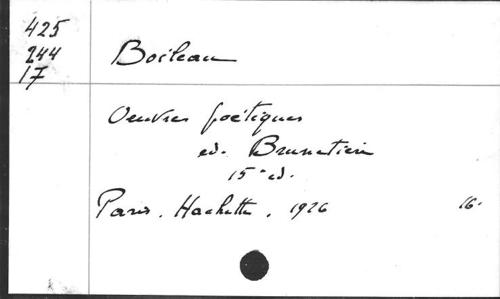 425
244
17
Boileau
Oeuvres poétiques
ed. Brunetière
15e ed.
Paris. Hachette. 1926 16.